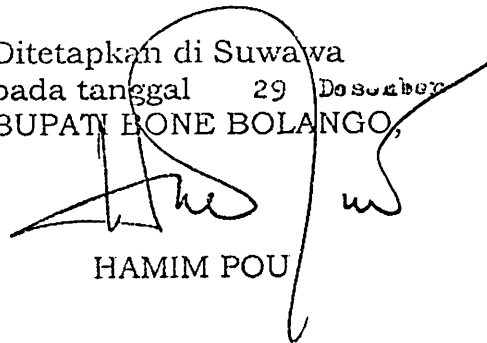 Ditetapkan di Suwawa
pada tanggal 29 Desember
BUPATI BONE BOLANGO,
HAMIM POU